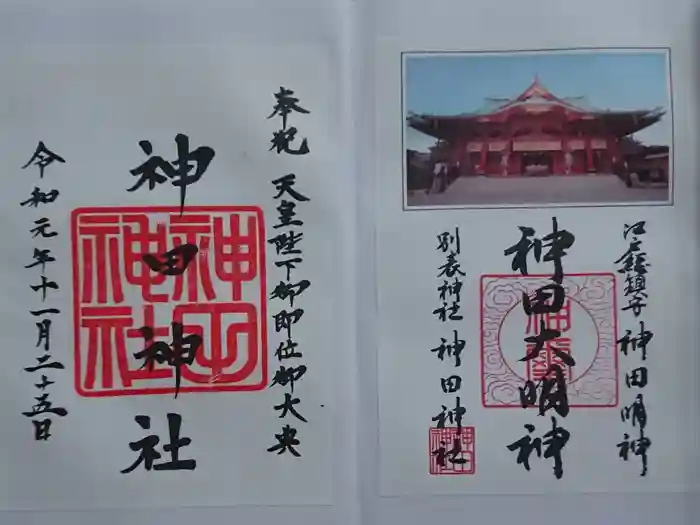 江戸総鎮守 神田明神
神田大明神
別表神社 神田神社
奉祝 天皇陛下御即位御大典
神田神社
令和元年十一月二十五日
神田神社